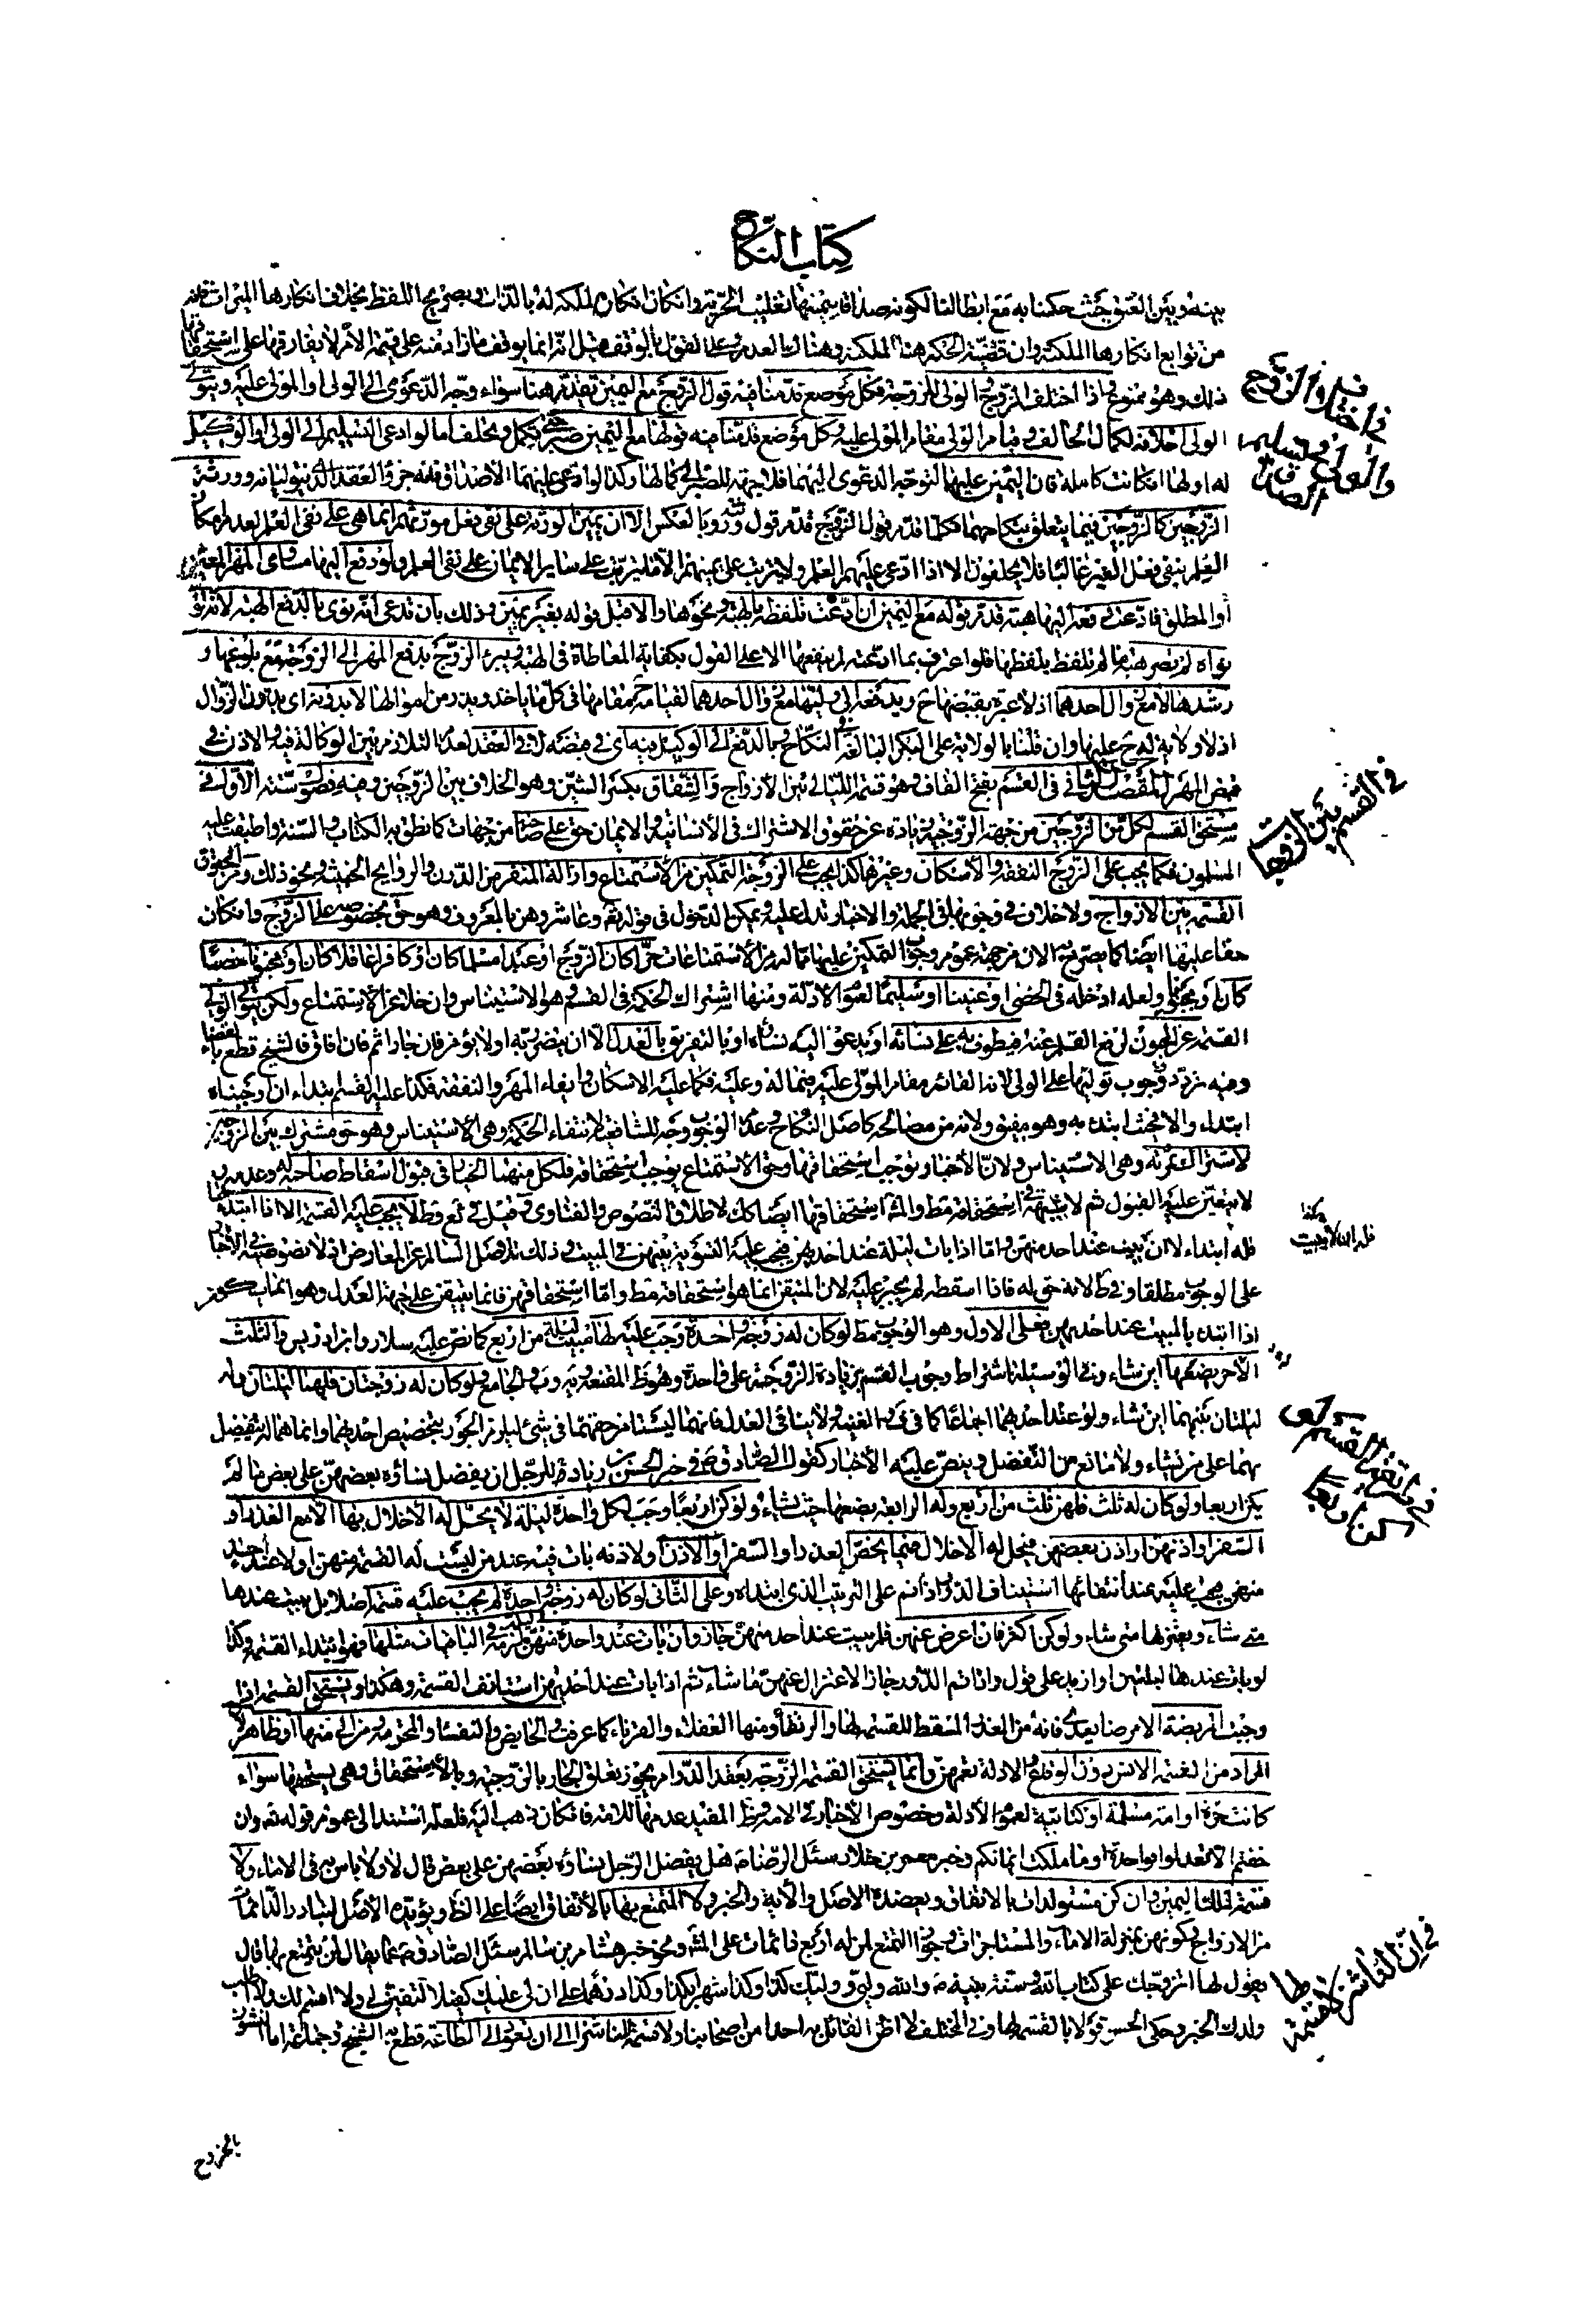 كتاب النكاح
بينه وبين العتق حيث حكمنا به مع ابطالنا لكونه صداقا بيمينها تغليب الحرية وان كان انكار الملكة له بالذات وبصريح اللفظ بخلاف انكارها الميراث فانه
من توابع انكارها الملكة وان قضية الحكمة هنا الملكة وهناك العدم وعلى القول بالوقف قيل انه انما يوقف ما زاد منه على قيمة الام لا يفارقها على استحقاقها
ذلك وهو ممنوع واذا اختلف الزوج والولي للزوجة فكل موضع قدمنا فيه قول الزوج مع اليمين تقدمه هنا سواء وجه الدعوى الى الولي او المولى عليه ويتولى
الولي احلافه لكمال الحالف وقيام الولي مقام المولى عليه وكل موضع قدمنا فيه قولها مع اليمين صبر حتى تكمل وتحلف اما لو ادعى التسليم الى الولي او الوكيل
له او لها ان كانت كاملة فان اليمين عليهما لتوجه الدعوى اليهما فلا جهة للصبر الى كمالها وكذا لو ادعى عليهما الاصداق فانه جزء العقد الذي يتوليانه وورثة
الزوجين كالزوجين فيما يتعلق بنكاحهما فكلما قدم قول الزوج قدم قول ورثته وبالعكس الا ان يمين الورثة على نفي فعل مورثهم انما هي على نفي العلم لعدم امكان
العلم بنفي فعل الغير غالبا فلا يحلفون الا اذا ادعى عليهم العلم ولا يترتب على يمينهم الا ما يترتب على ساير الايمان على نفي العلم ولو دفع اليها مساوي المهر المعين
او المطلق فادعت دفعه اليها هبة قدم قوله مع اليمين ان ادعت تلفظه بالهبة ونحوها والا قبل قوله بغير يمين وذلك بان تدعي انه نوى بالدفع الهبة لانه لو
نواه لم يصر هبة ما لم يتلفظ بلفظها فلو اعترف بما ادعته لم ينفعها الا على القول بكفاية المعاطاة في الهبة ويبرء الزوج بدفع المهر الى الزوجة مع بلوغها و
رشدها لا مع زوال احدهما اذ لا عبرة بقبضها ح ويدفعه الى وليها مع زوال احدهما لقيامه مقامها في كل ما ياخذ ويدر من اموالها لا بدونه اي بدون الزوال
اذ لا ولاية له ح عليها وان قلنا بالولاية على البكر البالغة في النكاح وبالدفع الى الوكيل فيه اي في قبضه لا في العقد لعدم التلازم بين الوكالة فيه والاذن في
قبض المهر المقصد الثاني في القسم بفتح القاف وهو قسمة الليالي بين الازواج والشقاق بكسر الشين وهو الخلاف بين الزوجين وفيه فصول ستة الاول في
مستحق القسم لكل من الزوجين من جهة الزوجية زيادة عن حقوق الاشتراك في الانسانية والايمان حق على صاحبه من جهات كما نطق به الكتاب والسنة واطبقت عليه
المسلمون فكما يجب على الزوج النفقة والاسكان وغيرهما كذا يجب على الزوجة التمكين من الاستمتاع وازالة المنفر من الدرن والروايح الخبيثة ونحو ذلك ومن الحقوق
القسمة بين الازواج ولا خلاف في وجوبها في الجملة والاخبار تدل عليه ويمكن الدخول في قوله تعالى وعاشروهن بالمعروف وهو حق مخصوص على الزوج وان كان
حقا عليها ايضا كما يصرح به الان من جهة عموم وجوب التمكين عليها مما له من الاستمتاعات حرا كان الزوج او عبدا مسلما كان او كافرا عاقلا كان او مجنونا خصيا
كان او مجبوبا ولعله ادخله في الخصي او عنينا او سليما لعموم الادلة ومنها اشتراك الحكمة في القسم وهو الاستيناس وان خلا عن الاستمتاع ولكن يتولى الولي
القسمة عن المجنون لرفع القلم عنه فيطوف به على نسائه او يدعو اليه نساءه او بالتفريق بالعدل الا ان يضر به او لا يؤمر فان جار اثم فان افاق قال الشيخ قطع
وفيه تردد وجوب توليتها على الولي لانه القائم مقام المولى عليه فيما له وعليه فكما عليه الاسكان وايفاء المهر والنفقة فكذا عليه القسم ابتداء ان اوجبناه
ابتداء والا بحيث ابتدء به وهو مفيق ولانه من مصالحه كاصل النكاح وعدم الوجوب وجه للشافعية لانتفاء الحكمة وهي الاستيناس وهو حق مشترك بين الزوجين
لاشتراك ثمرته وهي الاستيناس ولان الاخبار توجب استحقاقها وحق الاستمتاع يوجب استحقاقه فلكل منهما الخيار في قبول اسقاط صاحبه له وعدمه
لا يتعين عليه القبول ثم لا شبهة في استحقاقه مط والمشهور استحقاقها ايضا كك لاطلاق النصوص والفتاوى وقيل في يع وط لا يجب عليه القسمة الا اذا ابتدء بها
فله ابتداء لا ان يبيت عند احد منهن واما اذا بات ليلة عند احدهن فيجب عليه التسوية بينهن في المبيت وذلك للاصل السالم عن المعارض اذ لا نصوصية في الاخبار
على الوجوب مطلقا وفي ط لانه حق له فاذا اسقطه لم يجبر عليه لان المتيقن انما هو استحقاقه مط واما استحقاقهن فانما يتيقن على جهة العدل وهو انما يكون
اذا ابتدء بالمبيت عند احديهن فعلى الاول وهو الوجوب مط لو كان له زوجة واحدة وجب عليه لها مبيت ليلة من اربع كما نص عليه سلار وابن ادريس والثلث
الاخر يضعها اين شاء وفي الوسيلة اشتراط وجوب القسم بزيادة الزوجة على واحدة وهو ظ المقنعة ويه وب والجامع ولو كان له زوجتان فلهما ليلتان وله
ليلتان يبيتهما اين شاء ولو عند احديهما اجماعا كما في ف والغنية ولا ينافي العدل فانهما ليستا من حقهما في شيء ليلزم الجور بتخصيص احديهما وانما هما له يفضل
بهما على من يشاء ولا مانع من التفضل وينص عليه الاخبار كقول الصادق ع في خبر الحسن بن زياد للرجل ان يفضل نساؤه بعضهن على بعض ما لم
يكن اربعا ولو كان له ثلث فلهن ثلث من اربع وله الرابعة يضعها حيث يشاء ولو كن اربعا وجب لكل واحدة ليلة لا يحل له الاخلال بها الا مع العذر او
السفر او اذنهن او اذن بعضهن فيحل له الاخلال فيما يخص العذر او السفر او الاذن او لاذنه بات فيه عند من ليست له القسمة منهن او لا عند احد
منهن يجب عليه عند انتفائها استيناف الدور اذا تم على الترتيب الذي ابتداه وعلى الثاني لو كان له زوجة واحدة لم يجب عليه قسمة اصلا بل يبيت عندها
متى شاء ويعتزلها متى شاء ولو كن اكثر فان اعرض عنهن فلم يبيت عند احد منهن جاز وان بات عند واحدة منهن ليلة لزمه في الباقيات مثلها فهو ابتداء القسمة وكذا
لو بات عندها ليلتين او ازيد على قول واذا تم الدور جاز الاعتزال عنهن ما شاء ثم اذا بات عند احديهن استانف القسمة وهكذا ويستحق القسمة اذا
وجبت المريضة الا مرضا يعدى فانه من العذر المسقط للقسمة لها والرتقاء ومنها العفلاء والقرناء كما عرفت والحايض والنفساء والمحرمة والمولى منها والمظاهر لان
المراد من القسمة الانس دون الوقاع والادلة تعمهن وانما تستحق القسمة الزوجة بعقد الدوام يجوز تعلق الجار بالزوجة وبالاستحقاق وهي يستحقها سواء
كانت حرة او امة مسلمة او كتابية لعموم الادلة وخصوص الاخبار في الامة وظ المفيد عدمها للامة فان كان ذهب اليه فلعله استند الى عموم قوله تعالى وان
خفتم الا تعدلوا فواحدة او ما ملكت ايمانكم وخبر معمر بن خلاد سئل الرضا ع هل يفضل الرجل نساؤه بعضهن على بعض قال لا ولا باس به في الاماء ولا
قسمة لملك اليمين وان كن مستولدات بالاتفاق ويعضده الاصل والاية والخبر ولا المتمتع بها بالاتفاق ايضا على الظ ويؤيده الاصل لتبادر الدائمات
من الازواج وكونهن بمنزلة الاماء والمستاجرات وجواز التمتع لمن له اربع دائمات على المشهور ونحو خبر هشام بن سالم سئل الصادق ع عما يقال لمن يتمتع بها قال
يقول لها اتزوجك على كتاب الله وسنة نبيه ص والله وليي ووليك كذا وكذا شهرا بكذا وكذا درهما على ان لي عليك كفيلا لتفين لي ولا اقسم لك ولا اطلب
ولدك الخبر وحكي الحسن قولا بالقسمة لها وفي المختلف لا اظن القائل به احدا من اصحابنا ولا قسمة للناشز الى ان تعود الى الطاعة قطع به الشيخ وجماعة اما النشوز
بالخروج
في اختلاف الزوج
والولي في تسليم
الصداق
في القسم بين الزوجات
في ان الناشز لا قسمة لها